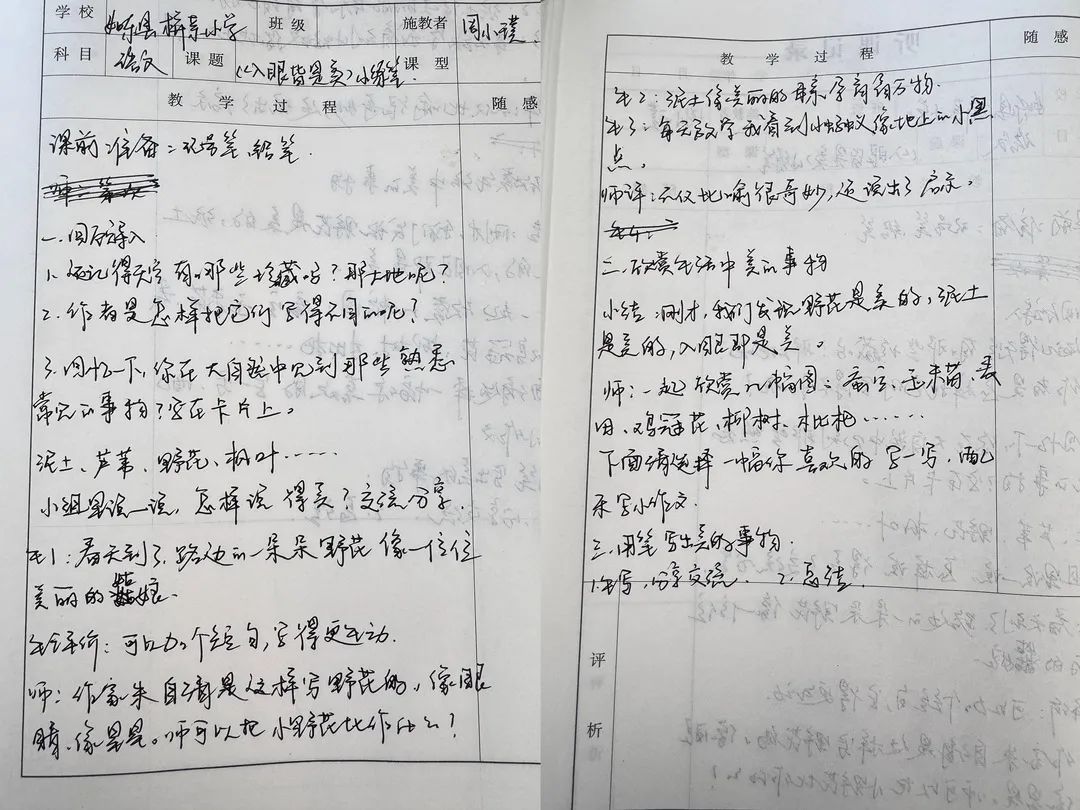 学校 如东县栟茶小学 班级 施教者 周小璞
科目 语文 课题 《入眼皆是美》小练笔 课型
教学过程 随感
课前准备:双号笔、铅笔.
一、回顾导入
1. 还记得天空有哪些珍藏吗?那大地呢?
2. 作者是怎样把它们写得不同的呢?
3. 回忆一下,你在大自然中见到那些熟悉
常见的事物?写在卡片上。
泥土、芦苇、野花、树叶……
小组里说一说,怎样说得美?交流分享.
生1:春天到了,路边的一朵朵野花像一位位
美丽的姑娘.
生评价:可以加个短句,写得更生动.
师:作家朱自清是这样写野花的,像眼
睛、像星星。师可以把小野花比作什么?
教学过程 随感
生2:泥土像美丽的,孕育着万物.
生3:每天放学我看到小蚂蚁像地上的小黑
点。
师评:不仅比喻很奇妙,还读出了启示。
二、欣赏生活中美的事物
小结:刚才,我们发现野花是美的,泥土
是美的,入眼即是美。
师:一起欣赏几幅图:夜空、玉米苗、
田、鸡冠花、柳树、枇杷……
下面请选择一幅你喜欢的写一写,
来写小作文.
三、用笔写出美的事物.
1. 生写,分享交流. 2. 总结.
评
析